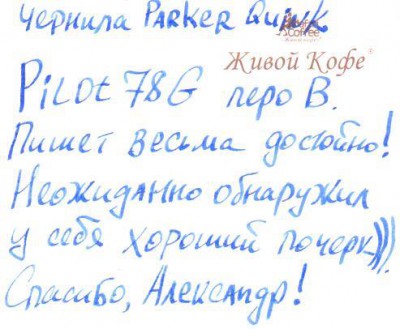 чернила Parker Quink
Живой Кофе®
Pilot 78G перо В.
Пишет весьма достойно!
Неожиданно обнаружил
у себя хороший почерк)))
Спасибо, Александр!